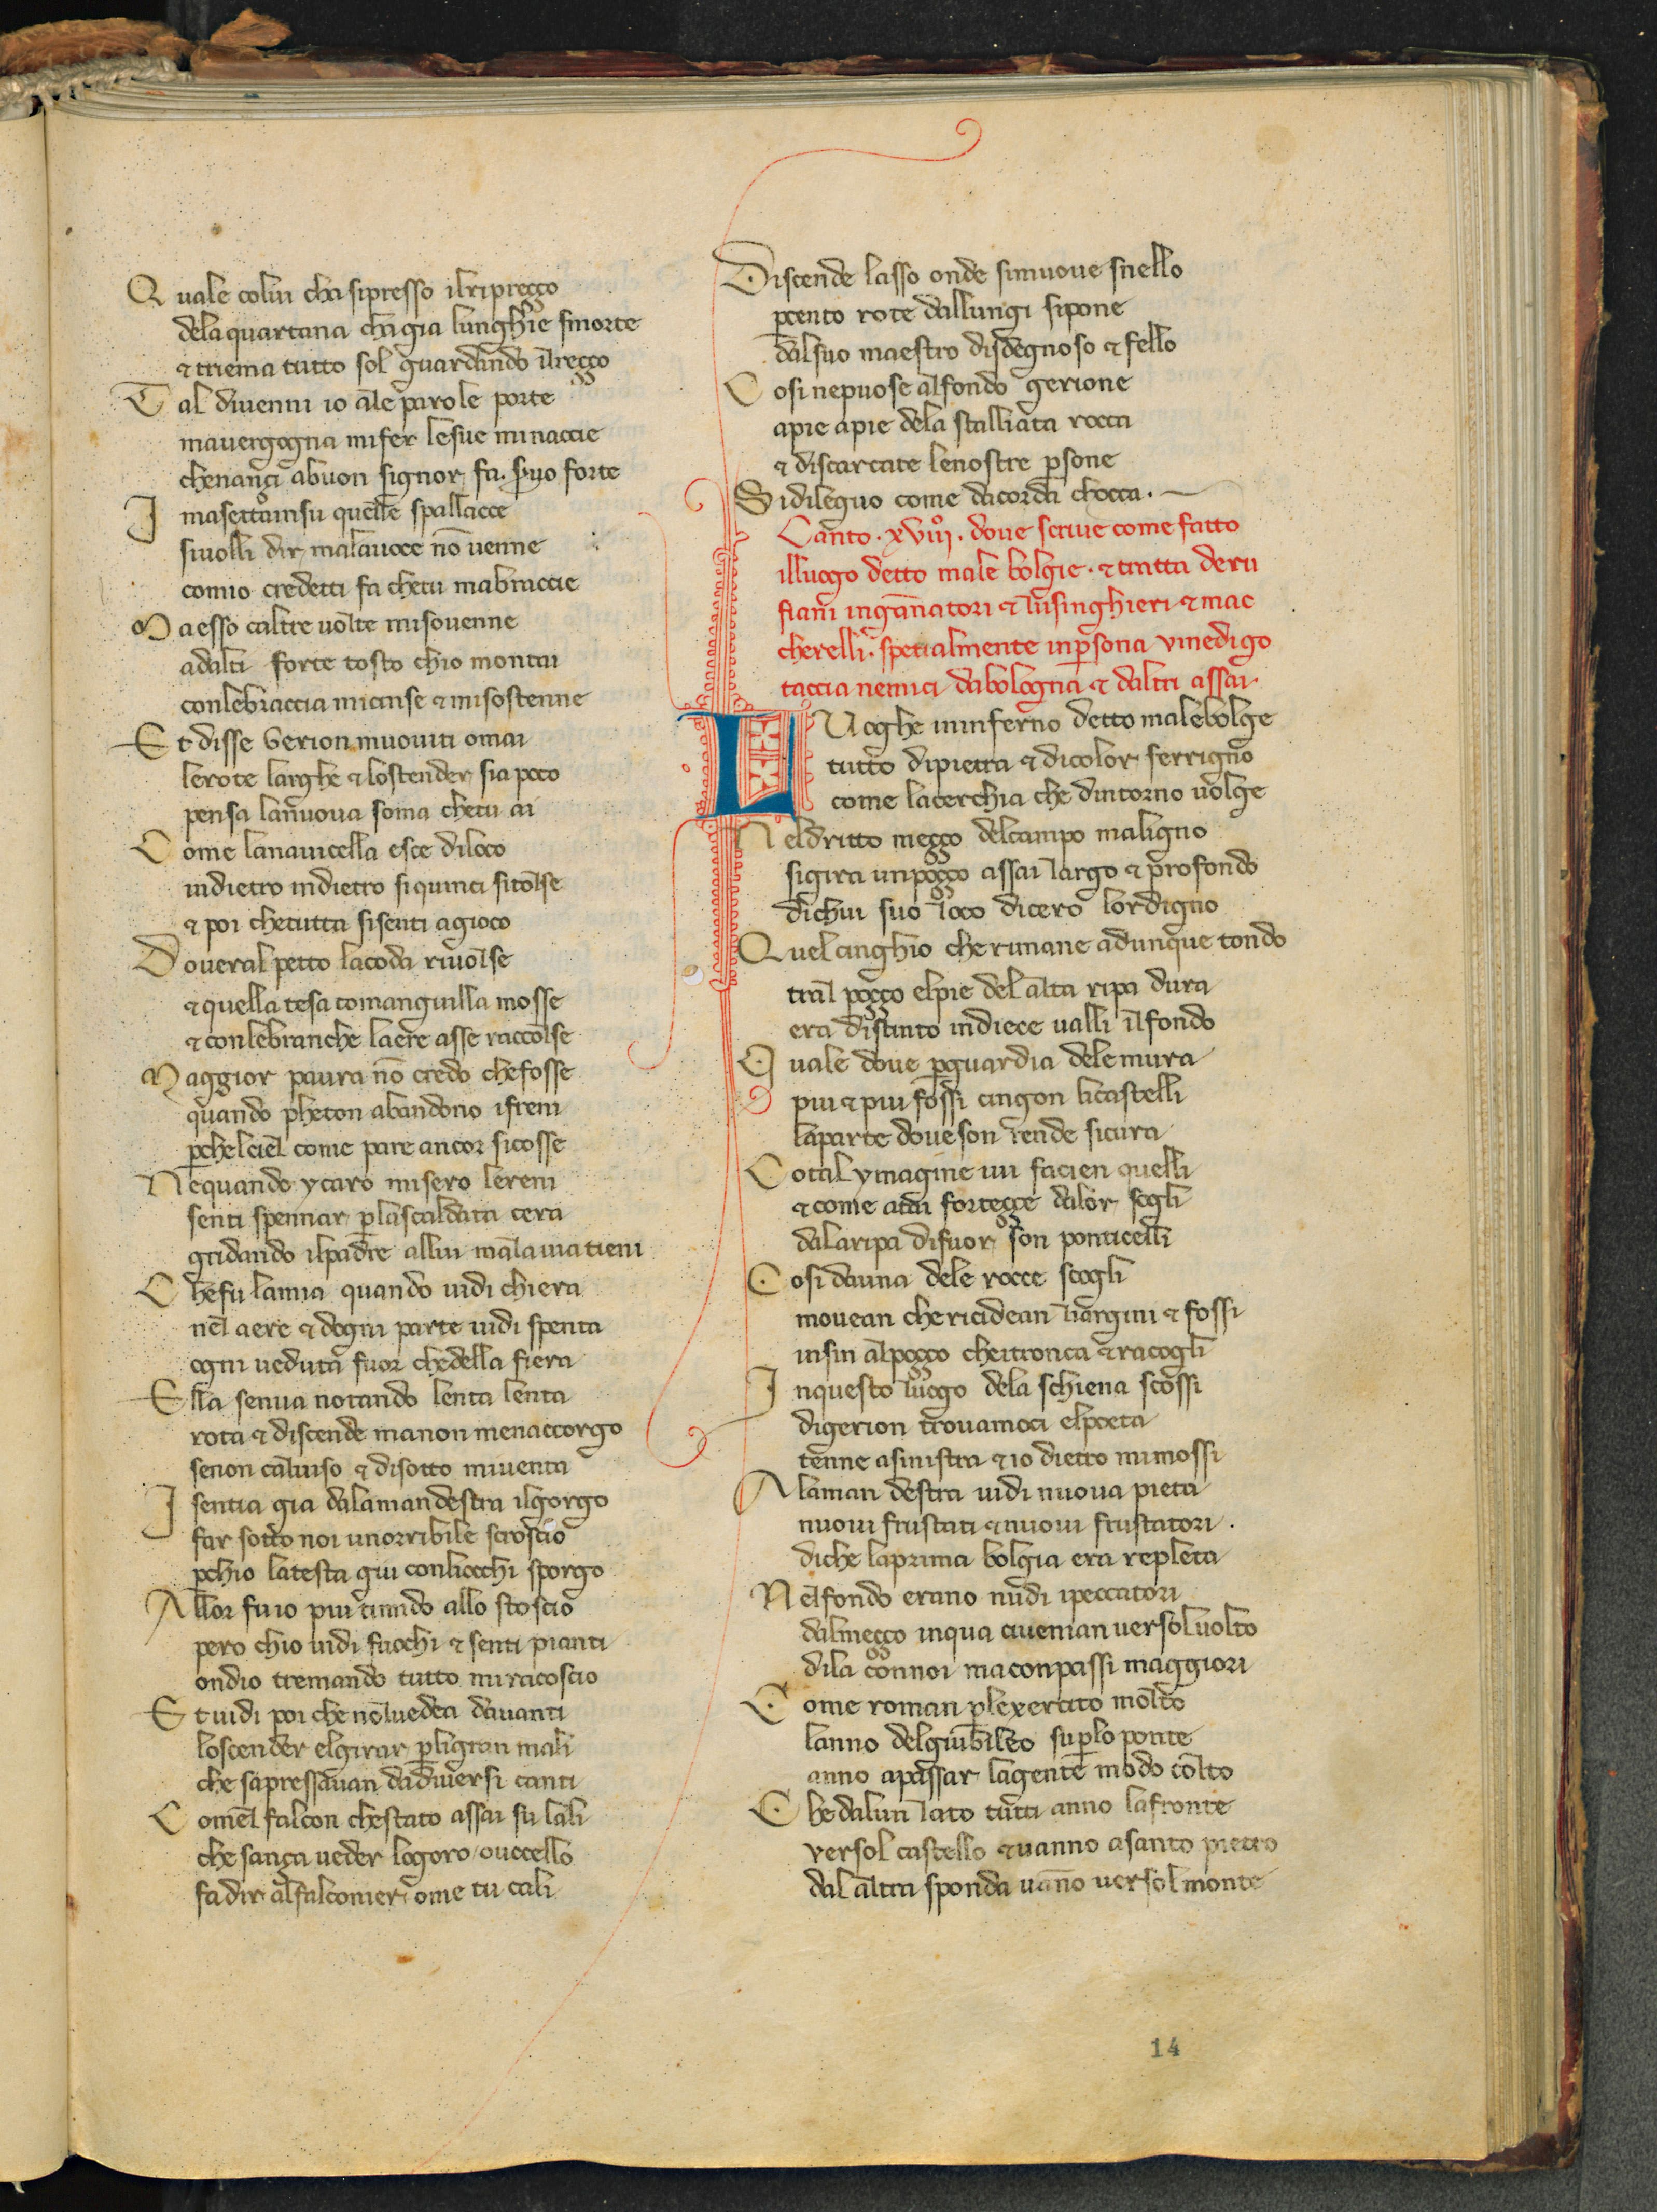 Quale colui cha sipresso ilripreçço
delaquartana cha gia lunghie smorte
⁊ triema tutto sol guardando ilreçço
Tal diuenni io ale parole porte
mauergogna mifer lesue minaccie
chenançi abuon signor fa ꝑuo forte
I masettaiinsu quelle spallacce
siuolli dir malauoce nō uenne
comio credetti fa chetu mabraccie
Maesso caltre uolte misouenne
adalti forte tosto chio montai
conlebraccia micinse ⁊ misostenne
Et disse Gerion muouiti omai
lerote larghe ⁊ loscender sia poco
pensa lanuoua soma chetu ai
Come lanauicella esce diloco
indietro indietro siquinci sitolse
⁊ poi chetutta sisenti agioco
Doueral petto lacoda riuolse
⁊ quella tesa comanguilla mosse
⁊ conlebranche laere asse raccolse
Maggior paura nō credo chefosse
quando pheton abandono ifreni
ꝑchelciel come pare ancor sicosse
Nequando ycaro misero lereni
senti spennar ꝑlascaldata cera
gridando ilpadre allui malauiatieni
Chefu lamia quando uidi chiera
nel aere ⁊ dogni parte uidi spenta
ogni ueduta fuor chedella fiera
Ella senua notando lenta lenta
rota ⁊ discende manon menaccorgo
senon caluiso ⁊ disotto miuenta
I sentia gia dalamandestra ilgorgo
far sotto noi unorribile scroscio
ꝑchio latesta giu conliocchi sporgo
Allor fuio piu timido allo scoscio
pero chio uidi fuochi ⁊ senti pianti
ondio tremando tutto miracoscio
Et uidi poi che nōluedea dauanti
loscender elgirar ꝑligran mali
che sapressauan dadiuersi canti
Comel falcon chestato assai su lali
che sança ueder logoro ouccello
fadir alfalconier ome tu cali
Discende lasso onde simuoue snello
ꝑcento rote dallungi sipone
dalsuo maestro disdegnoso ⁊ fello
Cosi nepuose alfondo gerione
apie apie dela stalliata rocca
⁊ discarcate lenostre ꝑsone
Sidileguo come dacorda chocca.
Canto .xviij. doue scriue come fatto
illuogo detto male bolgie. ⁊ tratta deru
fiani ingānatori ⁊ lusinghieri ⁊ mac
cherelli. spetialmente inꝑsona vinedigo
caccia nemici dabologna ⁊ daltri assai.
LUoghe ininferno detto malebolge
tutto dipietra ⁊ dicolor ferrigno
come lacerchia che dintorno uolge
Neldritto meçço delcampo maligno
sigira unpoçço assai largo ⁊ profondo
dichui suo loco dicero lordigno
Quelcinghio cherimane adunque tondo
tral poçço elpie del alta ripa dura
era distinto indiece ualli ilfondo
Quale doue ꝑguardia delemura
piu ⁊ piu fossi cingon licastelli
laparte doueson rende sicura
Cotal ymagine iui facien quelli
⁊ come atai forteçce dalor sogli
dalaripa difuor son ponticelli
Cosi dauna dele rocce scogli
mouean chericidean liargini ⁊ fossi
insin alpoçço cheitronca ⁊ racogli
Inquesto luogo dela schiena scossi
digerion trouamoci elpoeta
tenne asinistra ⁊ io dietro mimossi
Alaman destra uidi nuoua pieta
nuoui frustati ⁊ nuoui frustatori.
diche laprima bolgia era repleta
Nelfondo erano nudi ipeccatori
dalmeçço inqua ciuenian uersoluolto
dila connoi maconpassi maggiori
Come roman ꝑlexercito molto
lanno delgiubileo suꝑlo ponte
anno apassar lagente modo colto
Che dalun lato tutti anno lafronte
versol castello ⁊ uanno asanto pietro
dal altra sponda uāno uersol monte
14